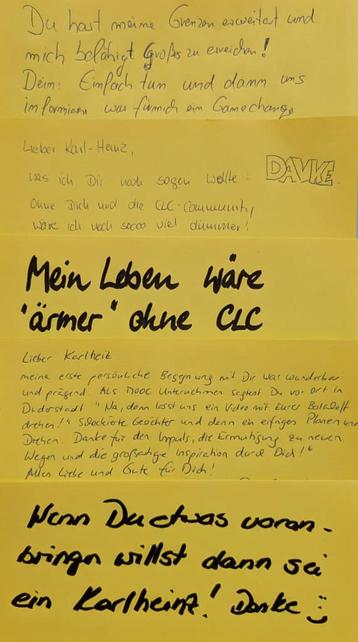 Du hast meine Grenzen erweitert und
mich befähigt Großes zu erreichen!
Dein: Einfach tun und dann uns
informieren war für mich ein Gamechange
Lieber Karl-Heinz,
was ich Dir noch sagen wollte:
DANKE
Ohne Dich und die CLC-Community,
wäre ich noch soooo viel dümmer!
Mein Leben wäre
"ärmer" ohne CLC
Lieber Karlheinz
meine erste persönliche Begegnung mit Dir war wunderbar
und prägend. Als MOOC Unternehmen sagtest Du vor Ort in
Duderstadt "Na, dann lasst uns ein Video mit Eurer Botschaft
drehen!" Schockierte Gesichter und dann ein eifriges Planen und
Drehen. Danke für den Impuls, die Ermutigung zu neuen
Wegen und die großartige Inspiration durch Dich!
Alles Liebe und Gute für Dich!
Wenn Du etwas voran-
bringen willst dann sei
ein Karlheinz! Danke :)